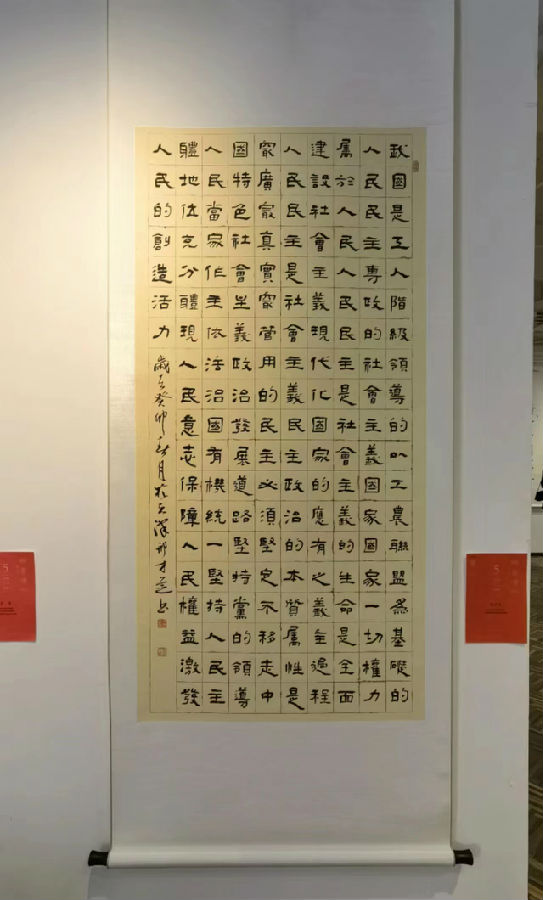 我國是工人階級領導的以工農聯盟為基礎的
人民民主專政的社會主義國家國家一切權力
屬於人民人民民主是社會主義的生命是全面
建設社會主義現代化國家的應有之義全過程
人民民主是社會主義民主政治的本質屬性是
最廣最真實最管用的民主必須堅定不移走中
國特色社會主義政治發展道路堅持黨的領導
人民當家作主依法治國有機統一堅持人民主
體地位充分體現人民意志保障人民權益激發
人民的創造活力 歲在癸卯秋月於